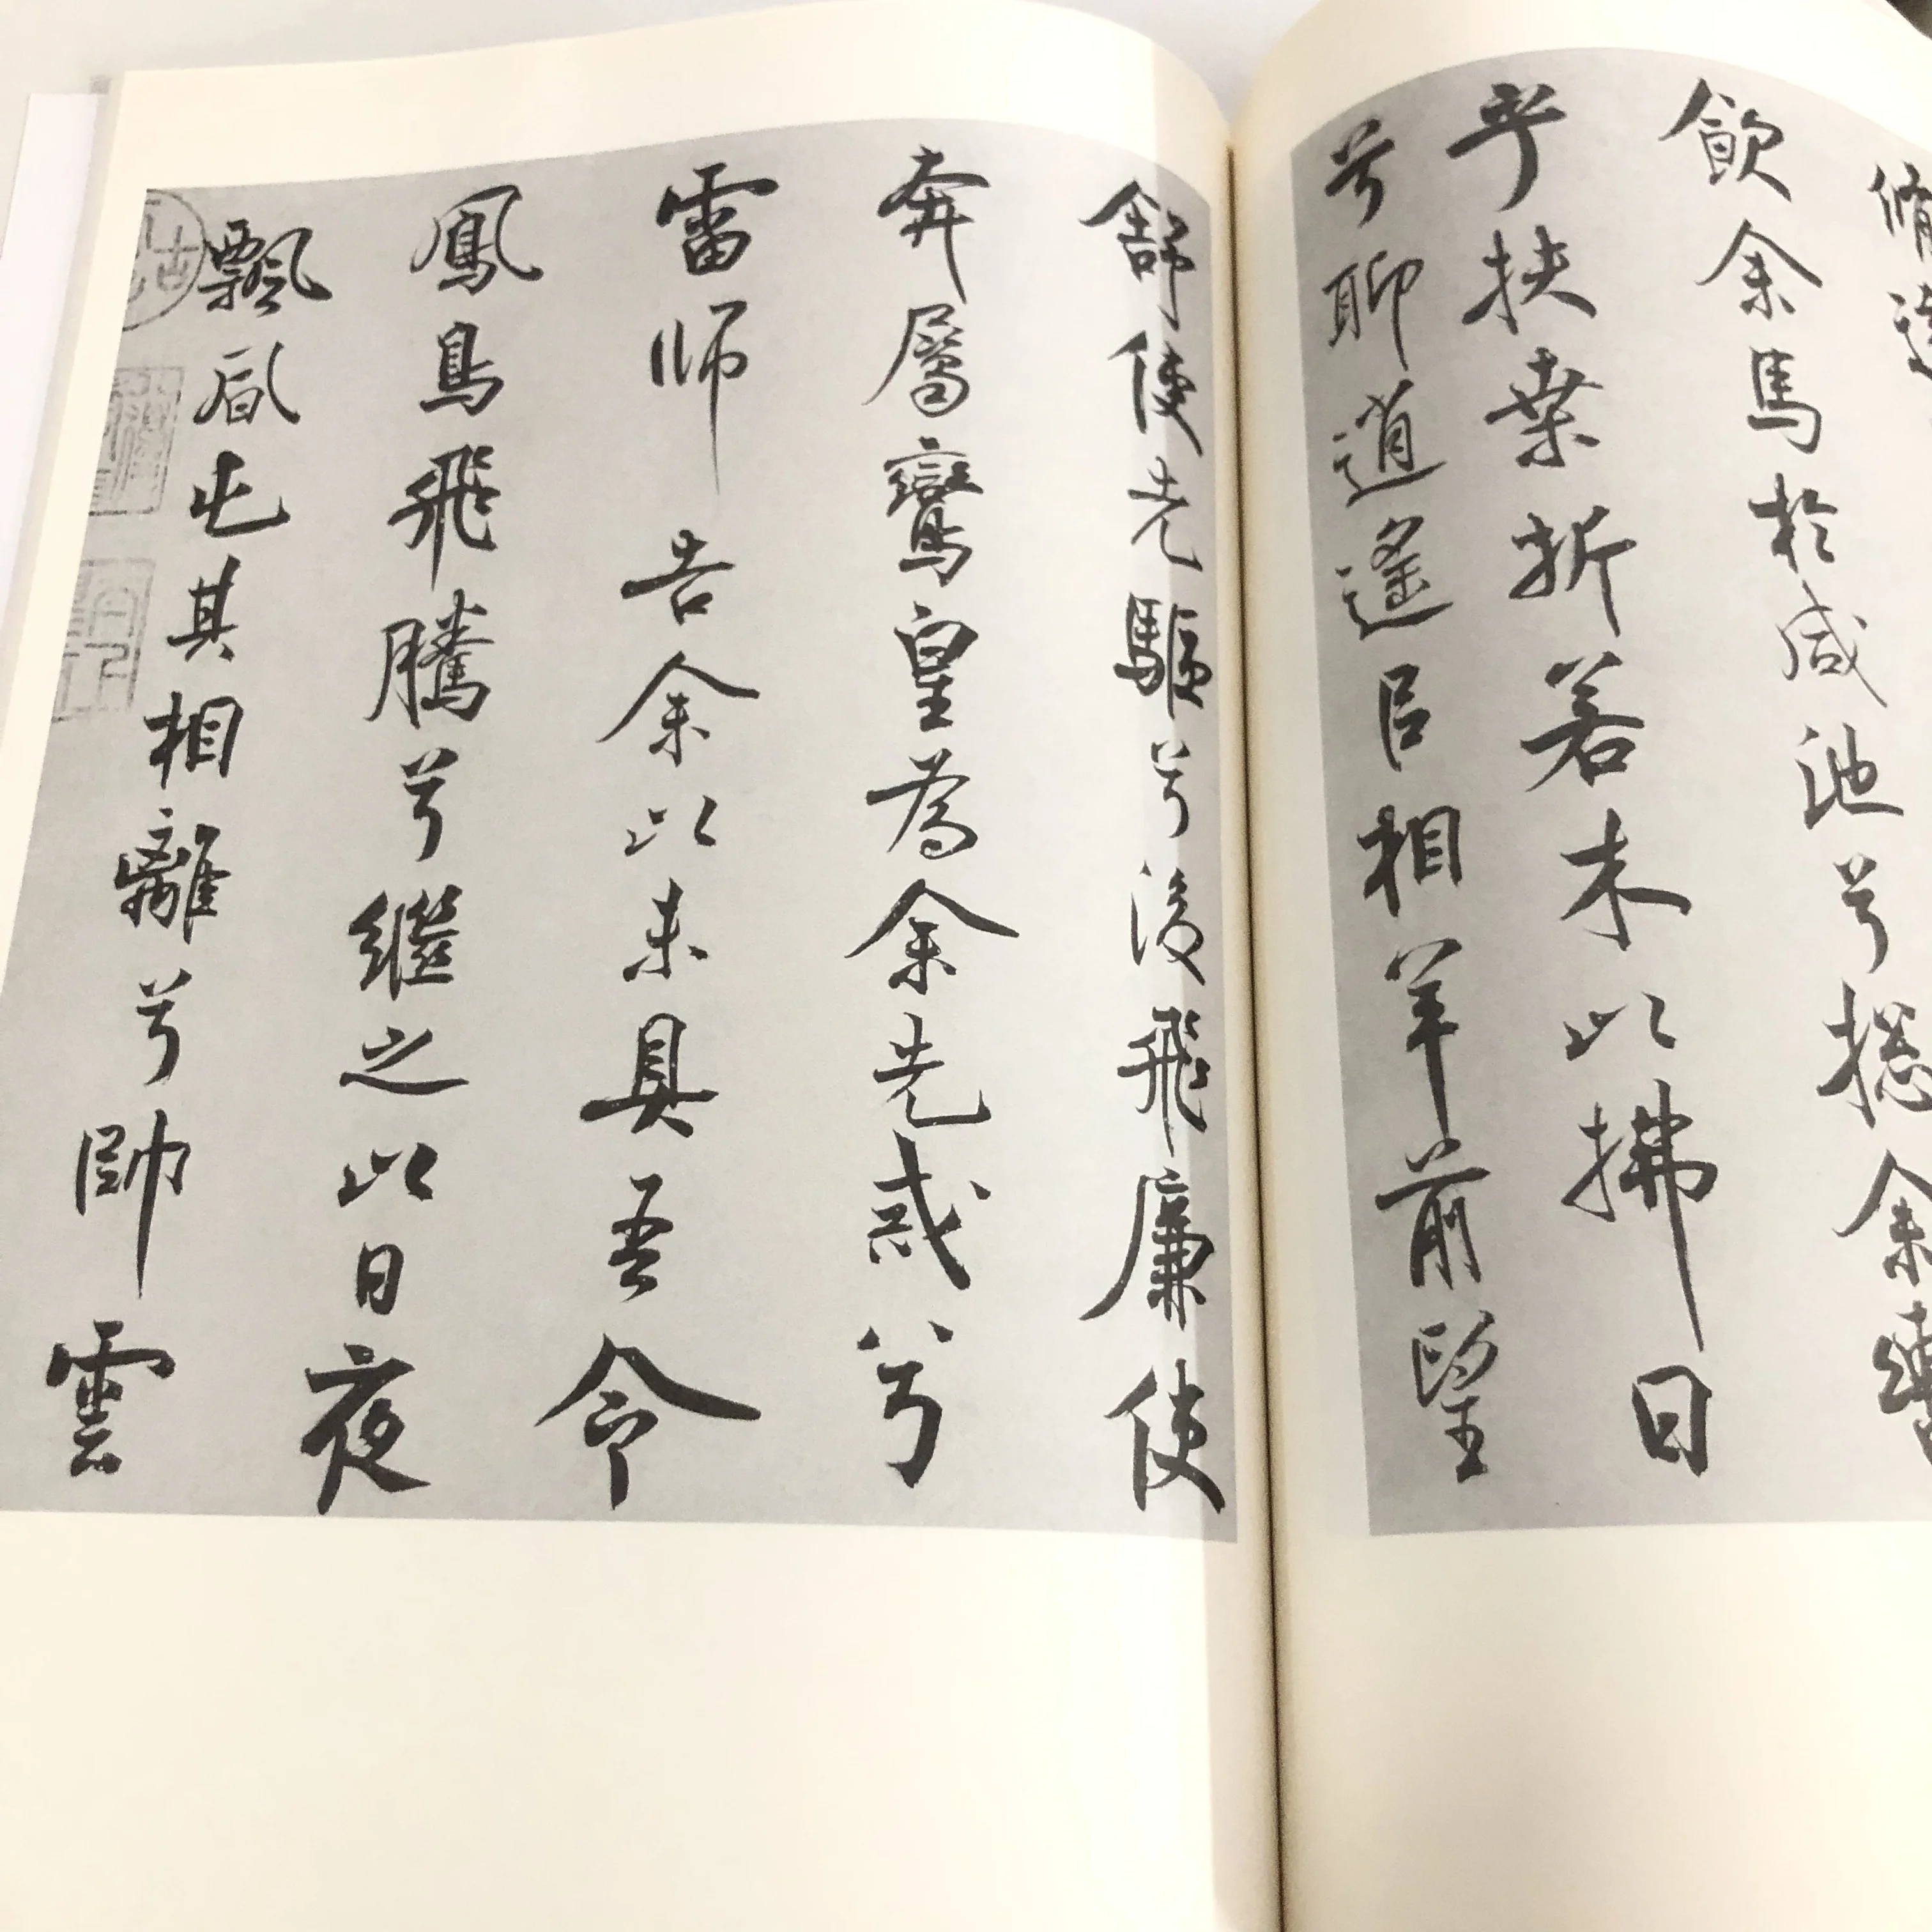 脩
飲余馬於咸池兮揔余轡
乎扶桒折若木以拂日
兮聊逍遙㠯相羊前望
舒使先驅兮後飛廉使
奔屬鸞皇為余先戒兮
雷師告余以未具吾令
鳳鳥飛騰兮繼之以日夜
飄風屯其相離兮帥雲